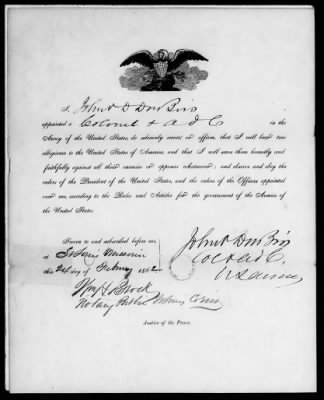 I, John D Doo Biro
appointed a Colonel & A d C in the
Army of the United States, do solemnly swear, or affirm, that I will bear true
allegiance to the United States of America, and that I will serve them honestly and
faithfully against all their enemies or opposers whatsoever; and observe and obey the
orders of the President of the United States, and the orders of the Officers appointed
over me, according to the Rules and Articles for the government of the Armies of
the United States.
Sworn to and subscribed before me,
at St Louis Missouri
this day of 1862
Wm H
Notary Public
John
Col & A d C
U S army
Justice of the Peace.